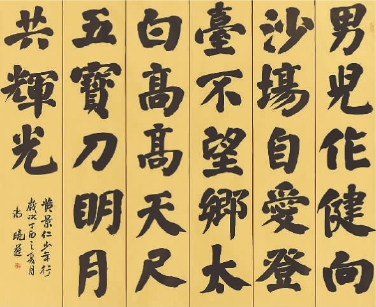 男兒作健向
沙場自愛登
臺不望鄉太
白高高天尺
五寶刀明月
共輝光
黄景仁少年行
歲次丁酉之夏月